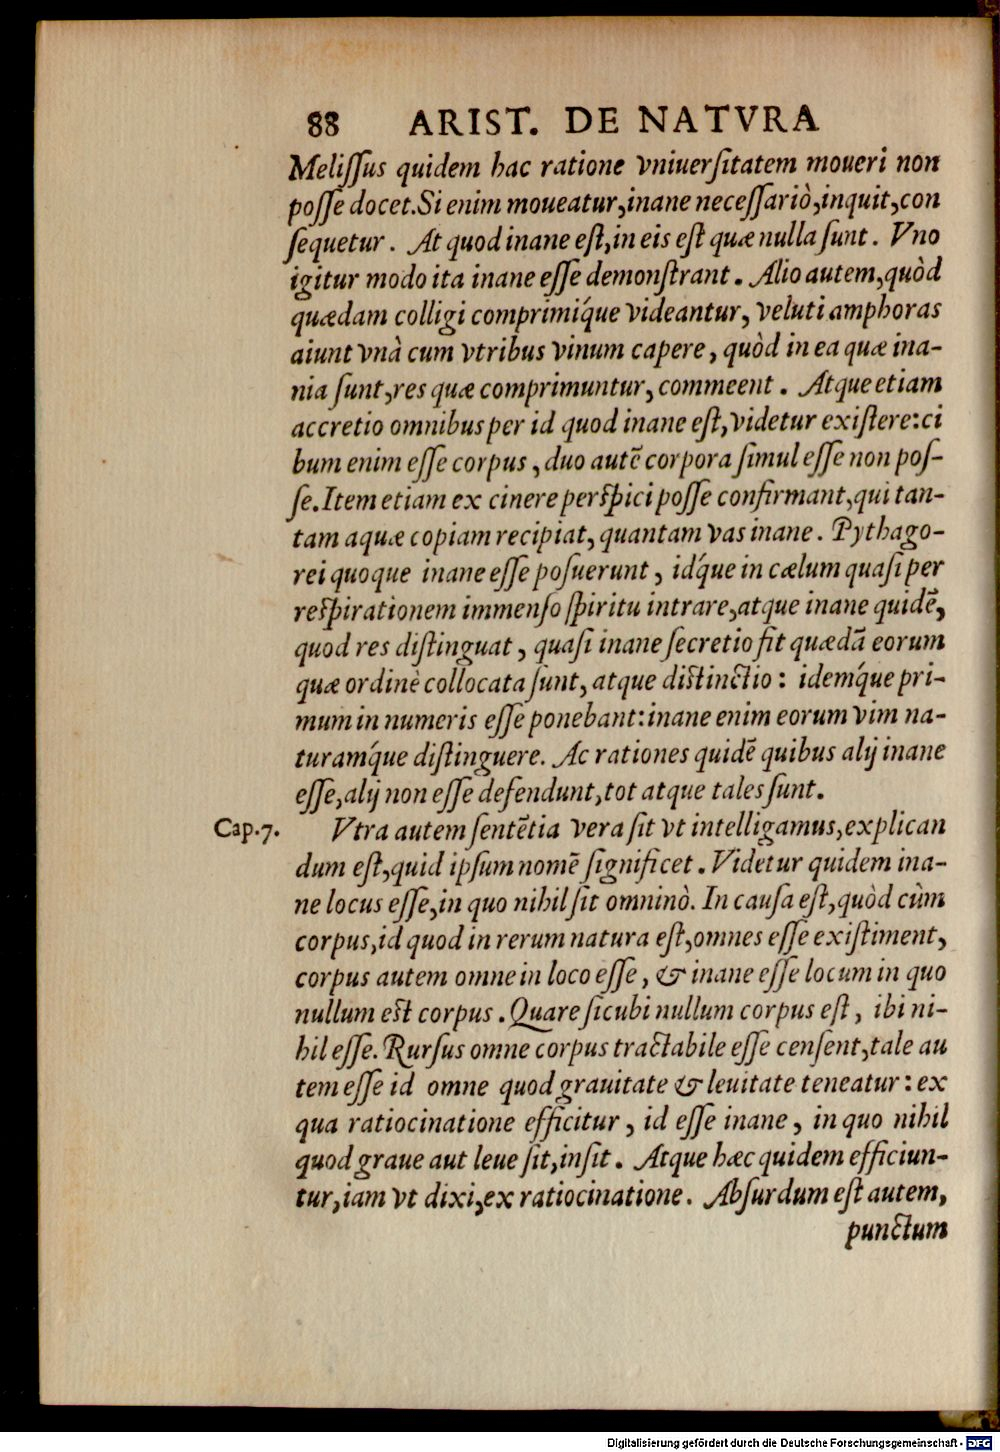 88 ARIST. DE NATVRA
Meliſſus quidem hac ratione vniuerſitatem moueri non
poſſe docet. Si enim moueatur, inane neceſſariò, inquit, con
ſequetur. At quod inane eſt, in eis eſt quæ nulla ſunt. Vno
igitur modo ita inane eſſe demonſtrant. Alio autem, quòd
quædam colligi comprimiq́ue videantur, veluti amphoras
aiunt vnà cum vtribus vinum capere, quòd in ea quæ ina-
nia ſunt, res quæ comprimuntur, commeent. Atque etiam
accretio omnibus per id quod inane eſt, videtur exiſtere: ci
bum enim eſſe corpus, duo autē corpora ſimul eſſe non poſ-
ſe. Item etiam ex cinere perſpici poſſe confirmant, qui tan-
tam aquæ copiam recipiat, quantam vas inane. Pythago-
rei quoque inane eſſe poſuerunt, idq́ue in cælum quaſi per
reſpirationem immenſo ſpiritu intrare, atque inane quidē,
quod res diſtinguat, quaſi inane ſecretio ſit quædā eorum
quæ ordinè collocata ſunt, atque diſtinctio: idemq́ue pri-
mum in numeris eſſe ponebant: inane enim eorum vim na-
turamq́ue diſtinguere. Ac rationes quidē quibus alij inane
eſſe, alij non eſſe defendunt, tot atque tales ſunt.
Cap. 7. Vtra autem ſentētia vera ſit vt intelligamus, explican
dum eſt, quid ipſum nomē ſignificet. Videtur quidem ina-
ne locus eſſe, in quo nihil ſit omninò. In cauſa eſt, quòd cùm
corpus, id quod in rerum natura eſt, omnes eſſe exiſtiment,
corpus autem omne in loco eſſe, & inane eſſe locum in quo
nullum eſt corpus. Quare ſicubi nullum corpus eſt, ibi ni-
hil eſſe. Rurſus omne corpus tractabile eſſe cenſent, tale au
tem eſſe id omne quod grauitate & leuitate teneatur: ex
qua ratiocinatione efficitur, id eſſe inane, in quo nihil
quod graue aut leue ſit, inſit. Atque hæc quidem efficiun-
tur, iam vt dixi, ex ratiocinatione. Abſurdum eſt autem,
punctum
Digitalisierung gefördert durch die Deutsche Forschungsgemeinschaft - DFG